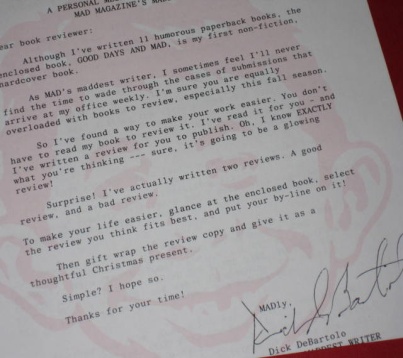 A PERSONAL MES
MAD MAGAZINE'S MA
ear book reviewer:
Although I've written 11 humorous paperback books, the
enclosed book, GOOD DAYS AND MAD, is my first non-fiction,
hardcover book.
As MAD's maddest writer, I sometimes feel I'll never
find the time to wade through the cases of submissions that
arrive at my office weekly. I'm sure you are equally
overloaded with books to review, especially this fall season.
So I've found a way to make your work easier. You don't
have to read my book to review it. I've read it for you - and
I've written a review for you to publish. Oh, I know EXACTLY
what you're thinking --- sure, it's going to be a glowing
review!
Surprise! I've actually written two reviews. A good
review, and a bad review.
To make your life easier, glance at the enclosed book, select
the review you think fits best, and put your by-line on it!
Then gift wrap the review copy and give it as a
thoughtful Christmas present.
Simple? I hope so.
Thanks for your time!
MADly,
Dick DeBartol
Dick DeBartolo
WRITER